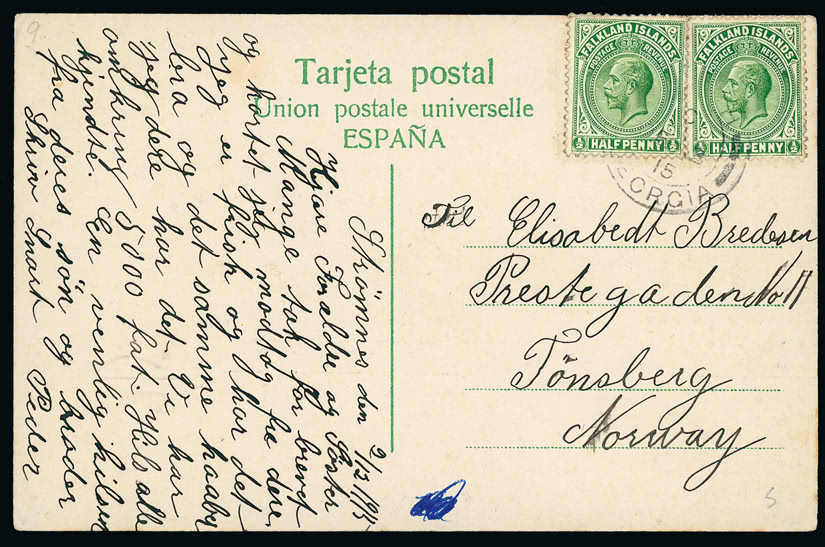 9.
Tarjeta postal
Union postale universelle
ESPAÑA
FALKLAND ISLANDS
POSTAGE REVENUE
½ HALF PENNY ½
FALKLAND ISLANDS
POSTAGE REVENUE
½ HALF PENNY ½
15
ORGIA
Til Elisabedt Bredesen
Prestegaden No 11
Tönsberg
Norway
Strömnes den 2/3 1915
Kjære Foraldre og Söster
Mange tak for brevet
og kortet jeg modtog fra dere
Jeg er frisk og har det
bra og det samme haaber
jeg dere har det Vi har
omkring 5000 fat Hils alle
kjendte. En venlig hilsen
fra deres sön og broder
Skriv Snart Peder
S